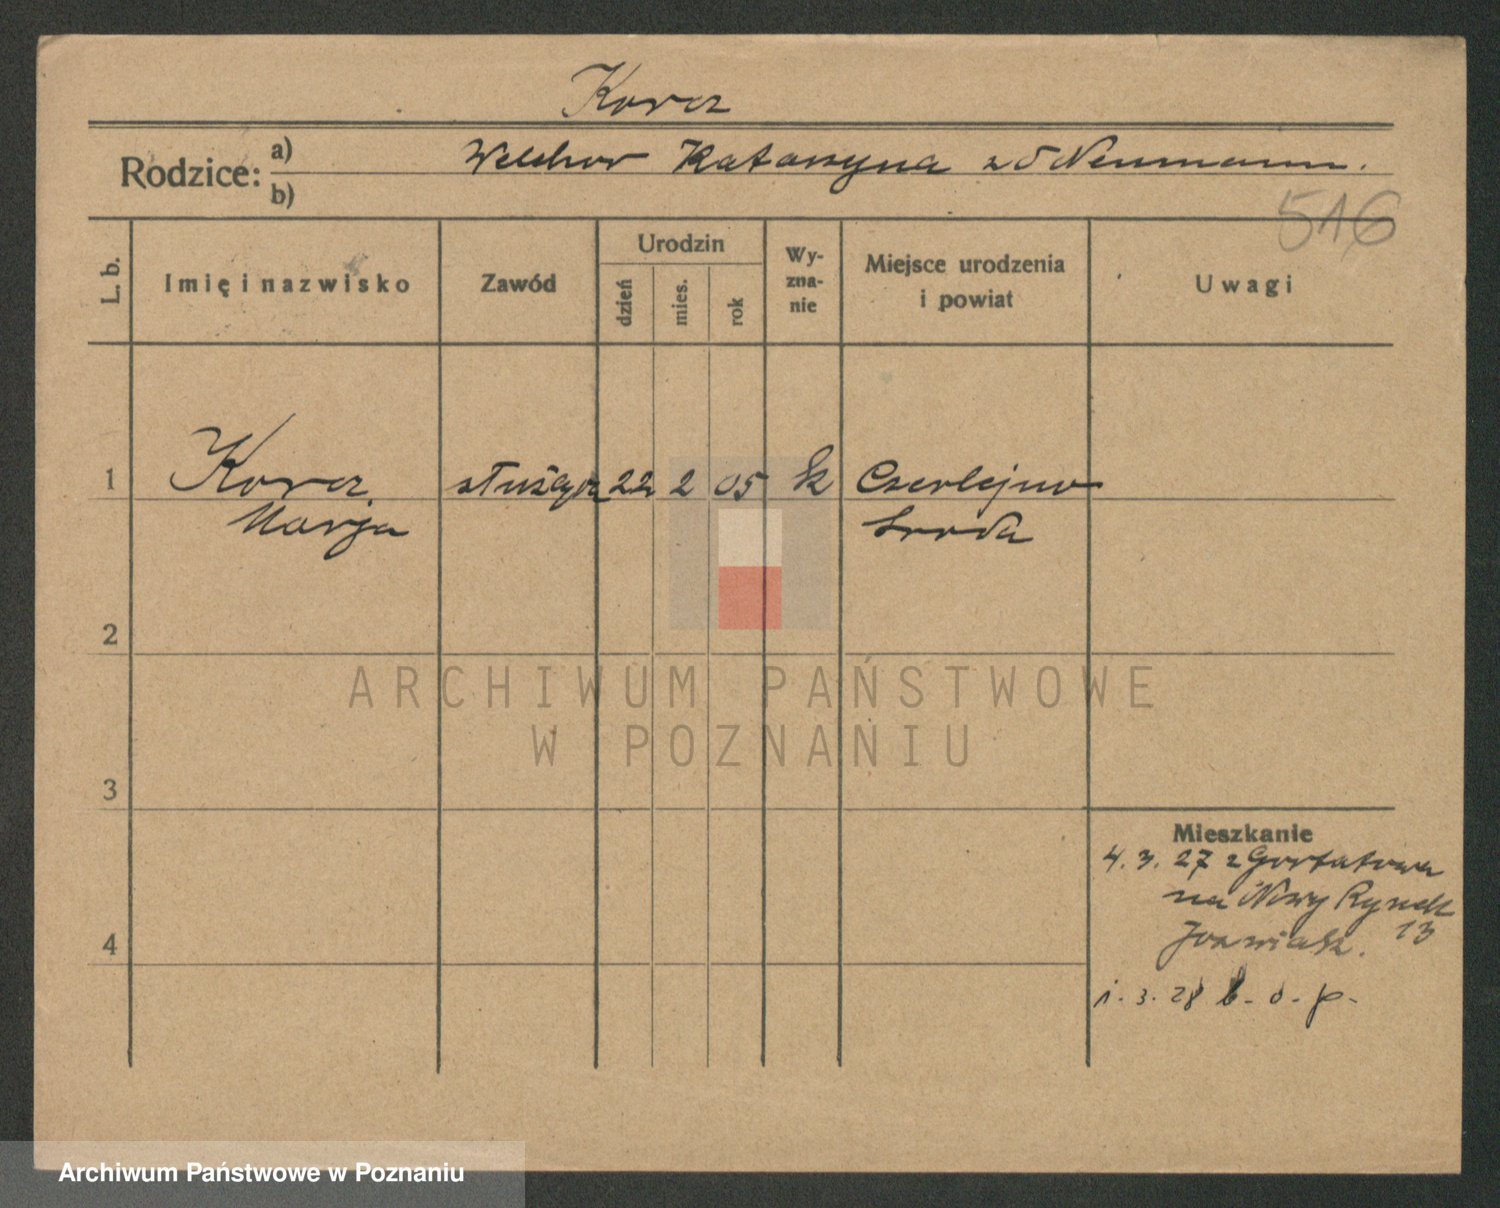 Korcz
Rodzice: a) Welchor Katarzyna z d Neumann.
b)
516
L. b.
Imię i nazwisko
Zawód
Urodzin
dzień
mies.
rok
Wy-
zna-
nie
Miejsce urodzenia
i powiat
Uwagi
1 Korcz służąca 22 2 05 k Czerlejno
Marja Sroda
2
3
4
Mieszkanie
4. 3. 27 z Gortatowa
na Nowy Rynek
13
1. 3. 28 b. o. p.
ARCHIWUM PAŃSTWOWE
W POZNANIU
Archiwum Państwowe w Poznaniu